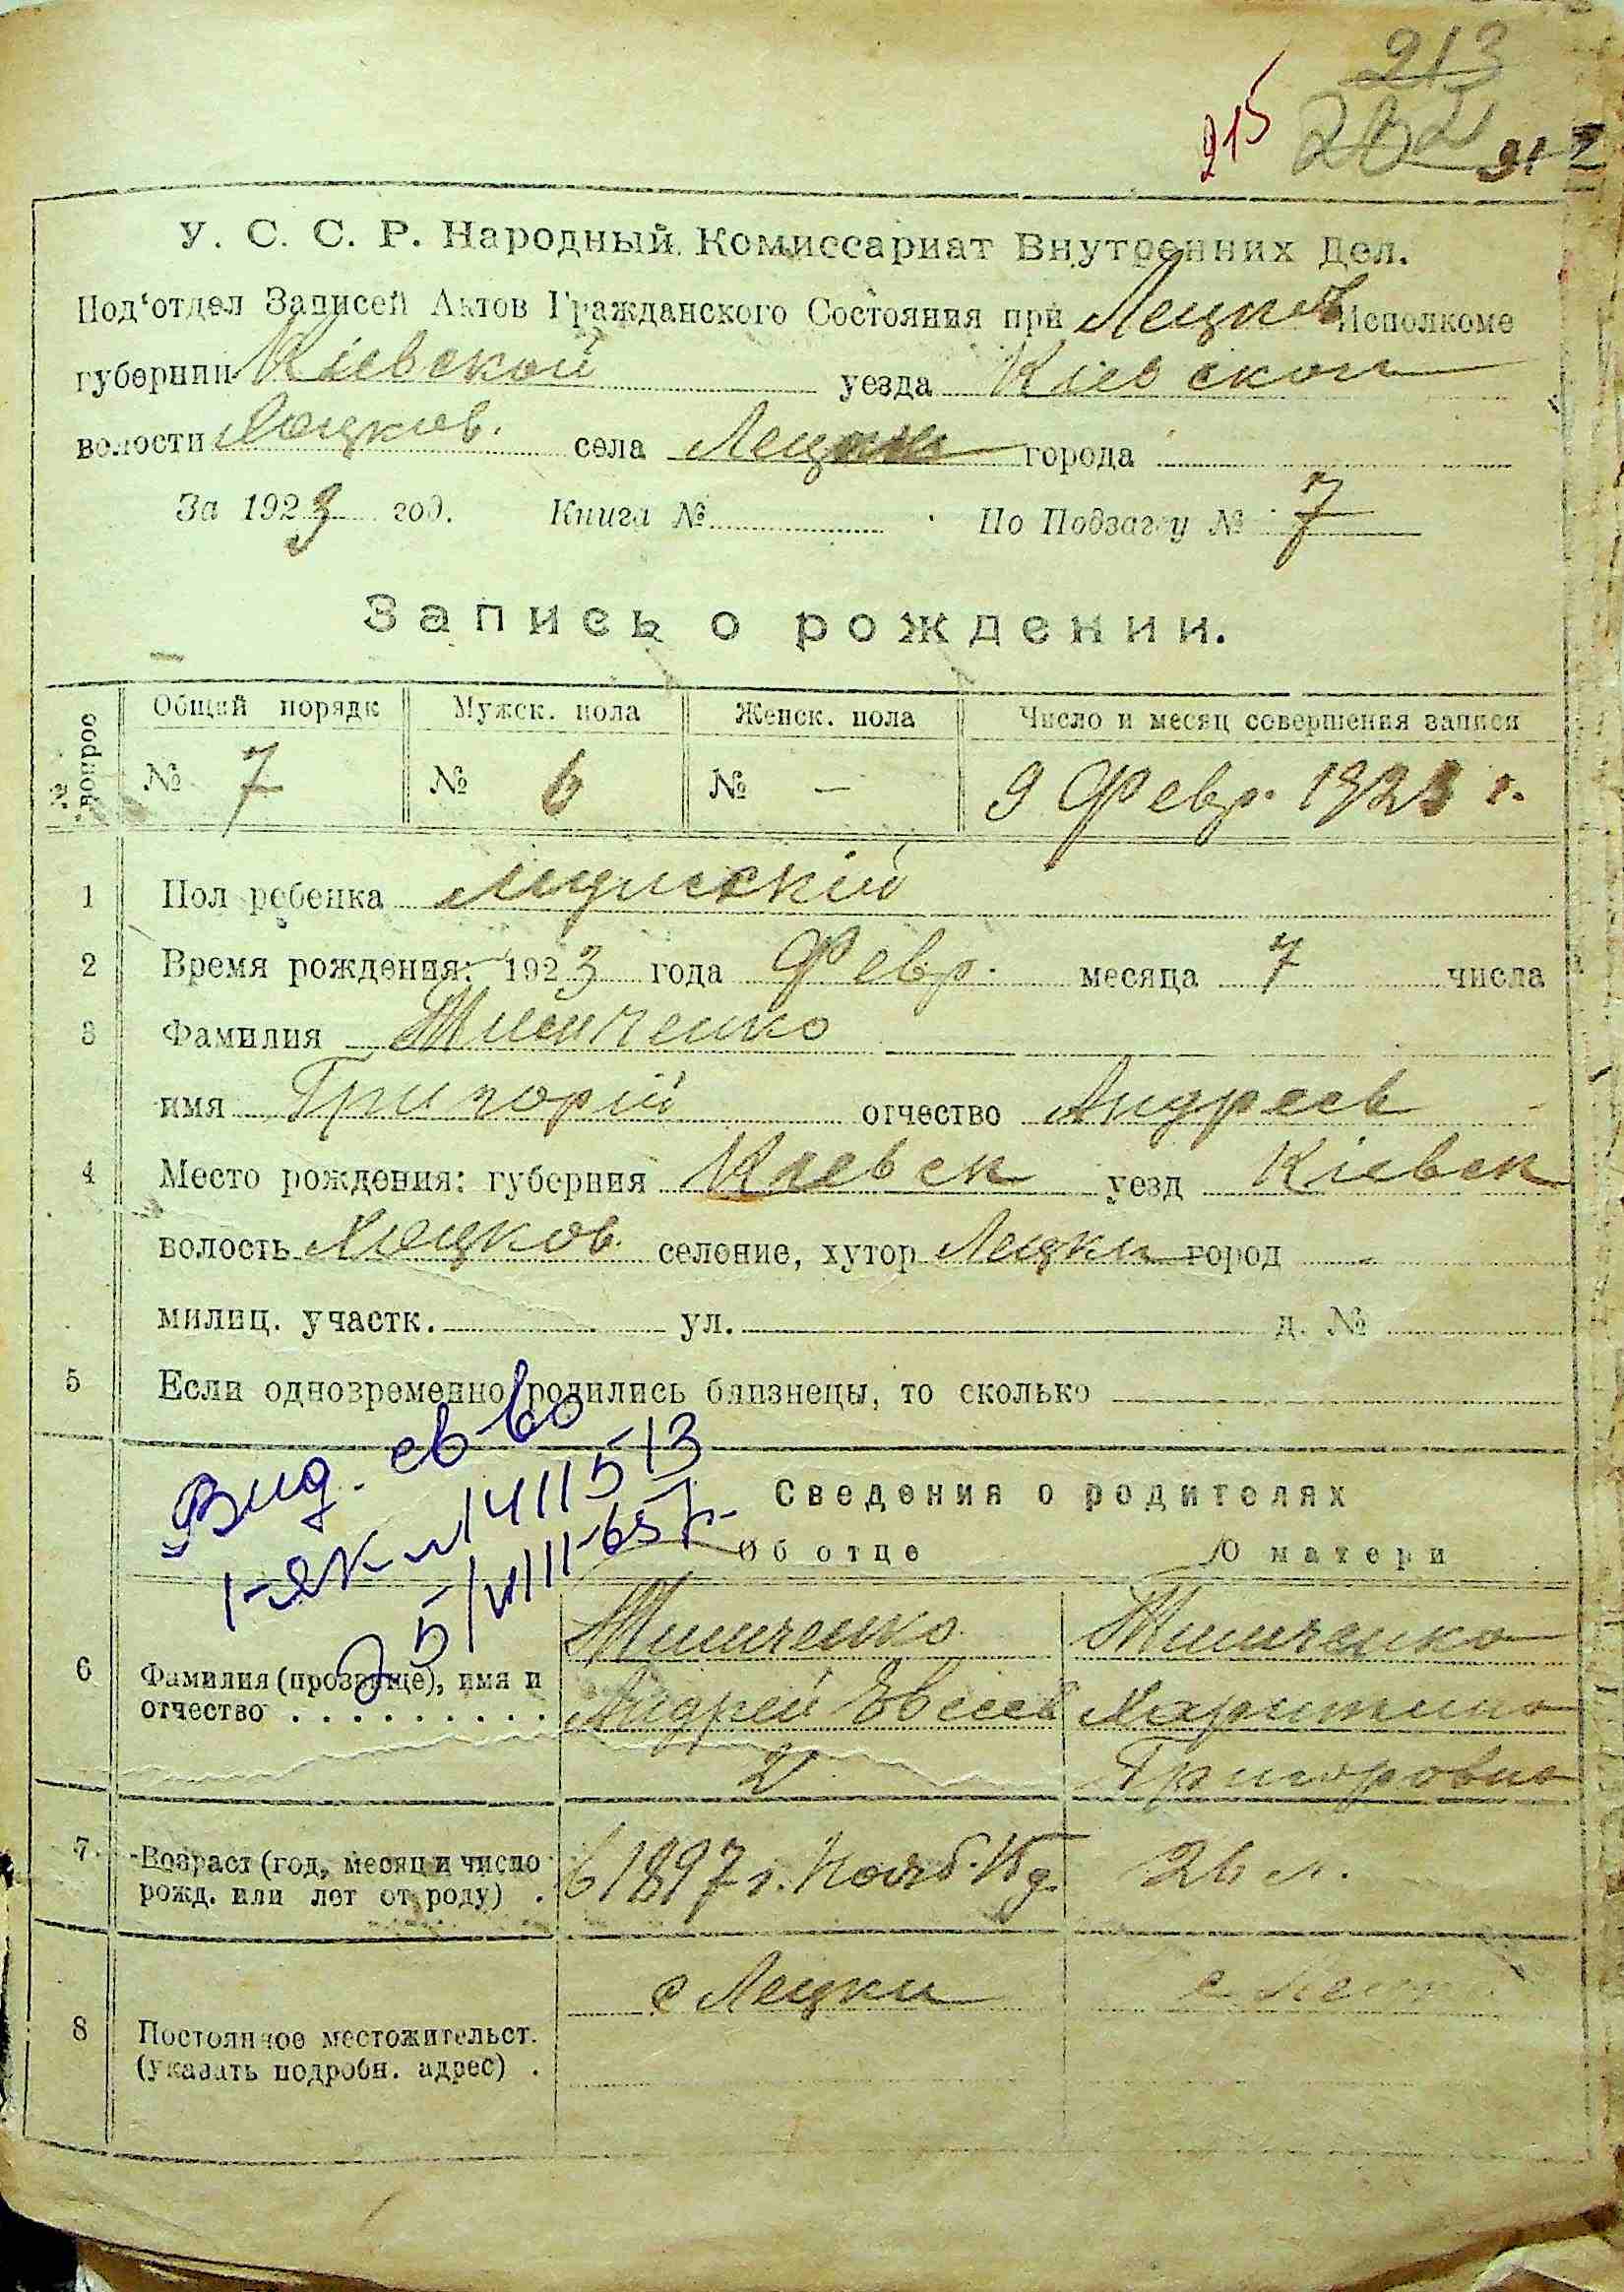 213
215
У. С. С. Р. Народный Комиссариат Внутренних Дел.
Под'отдел Записей Актов Гражданского Состояния при Лецков Исполкоме
губернии Кіевской уезда Кіевской
волости Лецков. села Лецки города
За 1923 год. Книга № По Подзагсу № 7
Запись о рождении.
№ вопрос Общий порядк Мужск. пола Женск. пола Число и месяц совершения записи
№ 7 № 6 № — 9 Февр. 1923 г.
1 Пол ребенка Мужскій
2 Время рождения: 1923 года Февр. месяца 7 числа
3 Фамилия
имя Григорій отчество Андреев
4 Место рождения: губерния Киевск уезд Кіевск
волость Лецков. селение, хутор Лецки город —
милиц. участк. ул. д. №
5 Если одновременно родились близнецы, то сколько
Вид. св-во
1411513
5/VIII-65 р.
Сведения о родителях
Об отце О матери
6 Фамилия (прозвище), имя и
отчество . . . . . . . . .
Андрей Евсеев
Григоровна
7. Возраст (год, месяц и число
рожд. или лет от роду) .
1897 г. Нояб. 26 л.
8 Постоянное местожительст.
(указать подробн. адрес) .
с Лецки